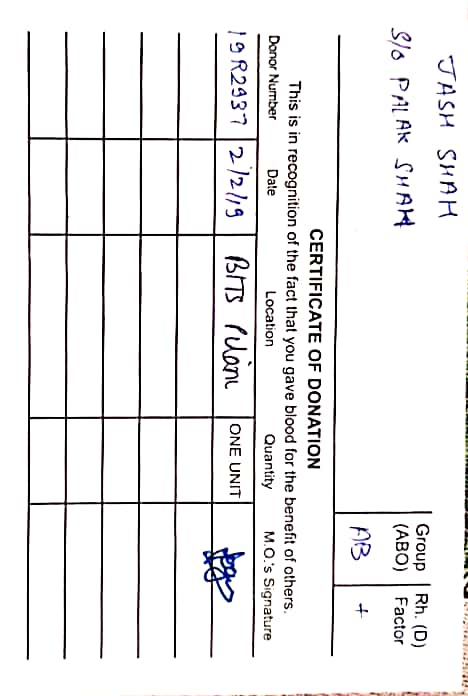 JASH SHAH
S/o PALAK SHAH
Group (ABO) Rh. (D) Factor
AB +
CERTIFICATE OF DONATION
This is in recognition of the fact that you gave blood for the benefit of others.
Donor Number Date Location Quantity M.O.'s Signature
19R2937 2/2/19 BITS Pilani ONE UNIT